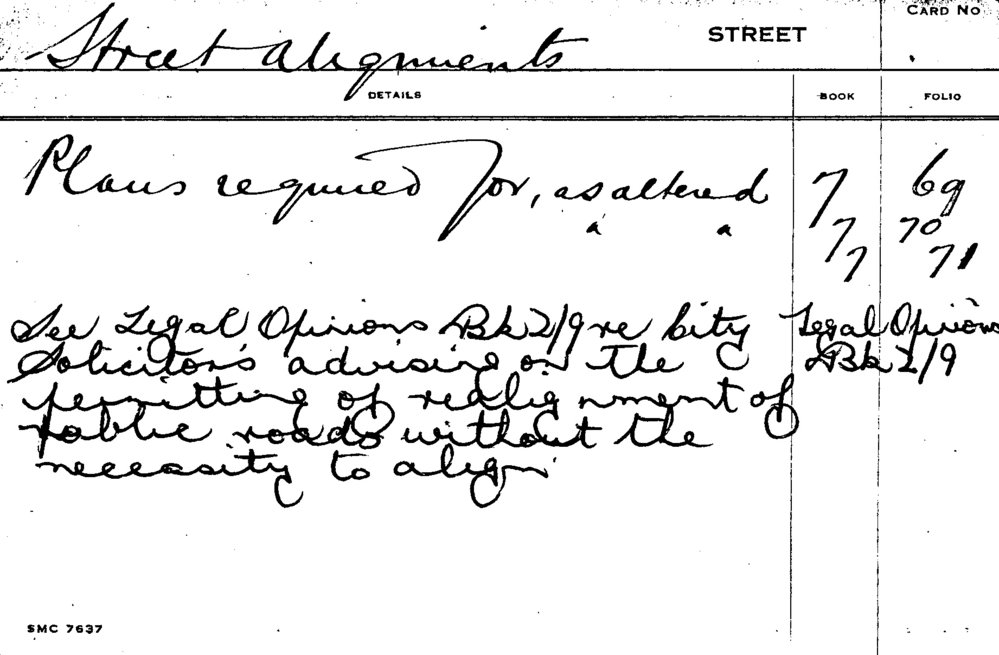 CARD NO
Street Alignments STREET
DETAILS BOOK FOLIO
Plans required for, as altered 7 69
" " 7 70
7 71
See Legal Opinions Bk 2/9 re City Legal Opinions
Solicitors advising on the Bk 2/9
permitting of realignment of
public roads without the
necessity to align
SMC 7637